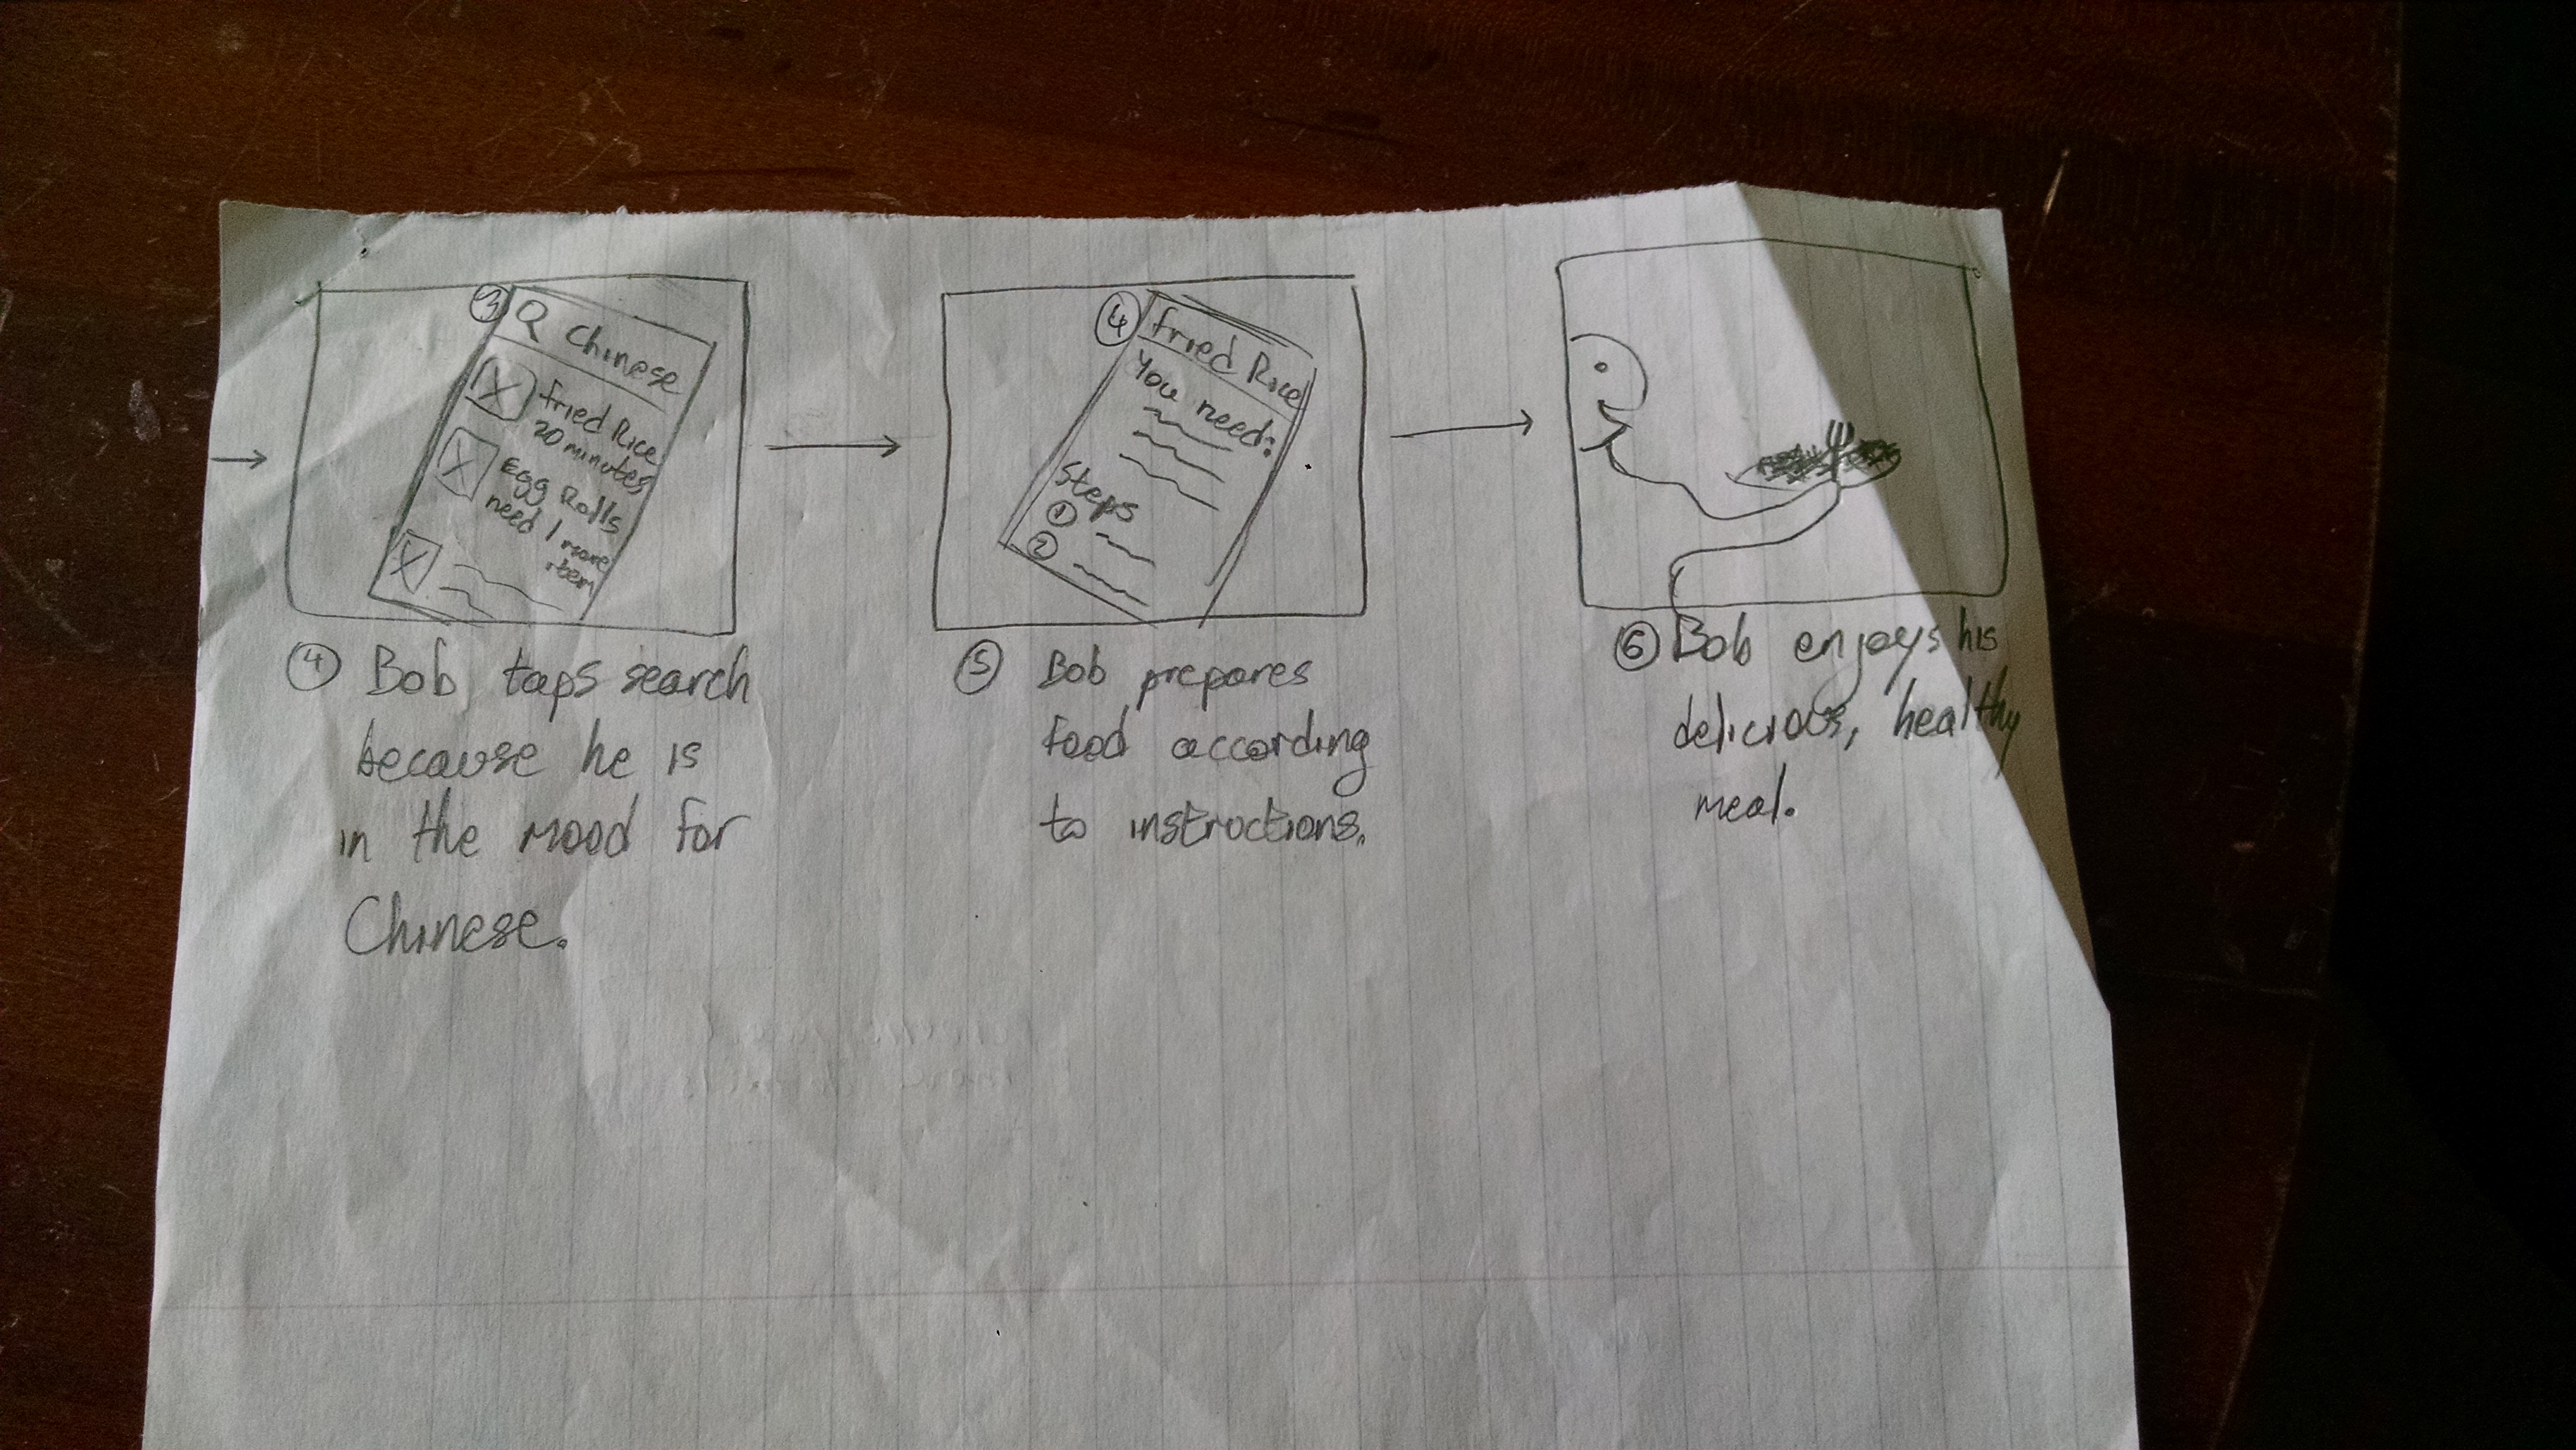 3
Chinese
Fried Rice
20 minutes
Egg Rolls
need 1 more
item
4 Bob taps search
because he is
in the mood for
Chinese.
4
Fried Rice
You need:
Steps
1
2
5 Bob prepares
food according
to instructions.
6 Bob enjoys his
delicious, healthy
meal.